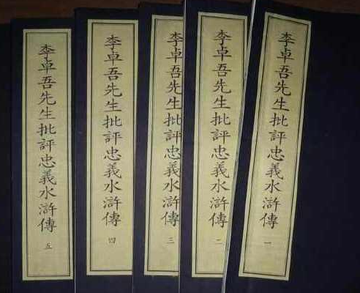 李卓吾先生批評忠義水滸傳 一
李卓吾先生批評忠義水滸傳 二
李卓吾先生批評忠義水滸傳 三
李卓吾先生批評忠義水滸傳 四
李卓吾先生批評忠義水滸傳 五